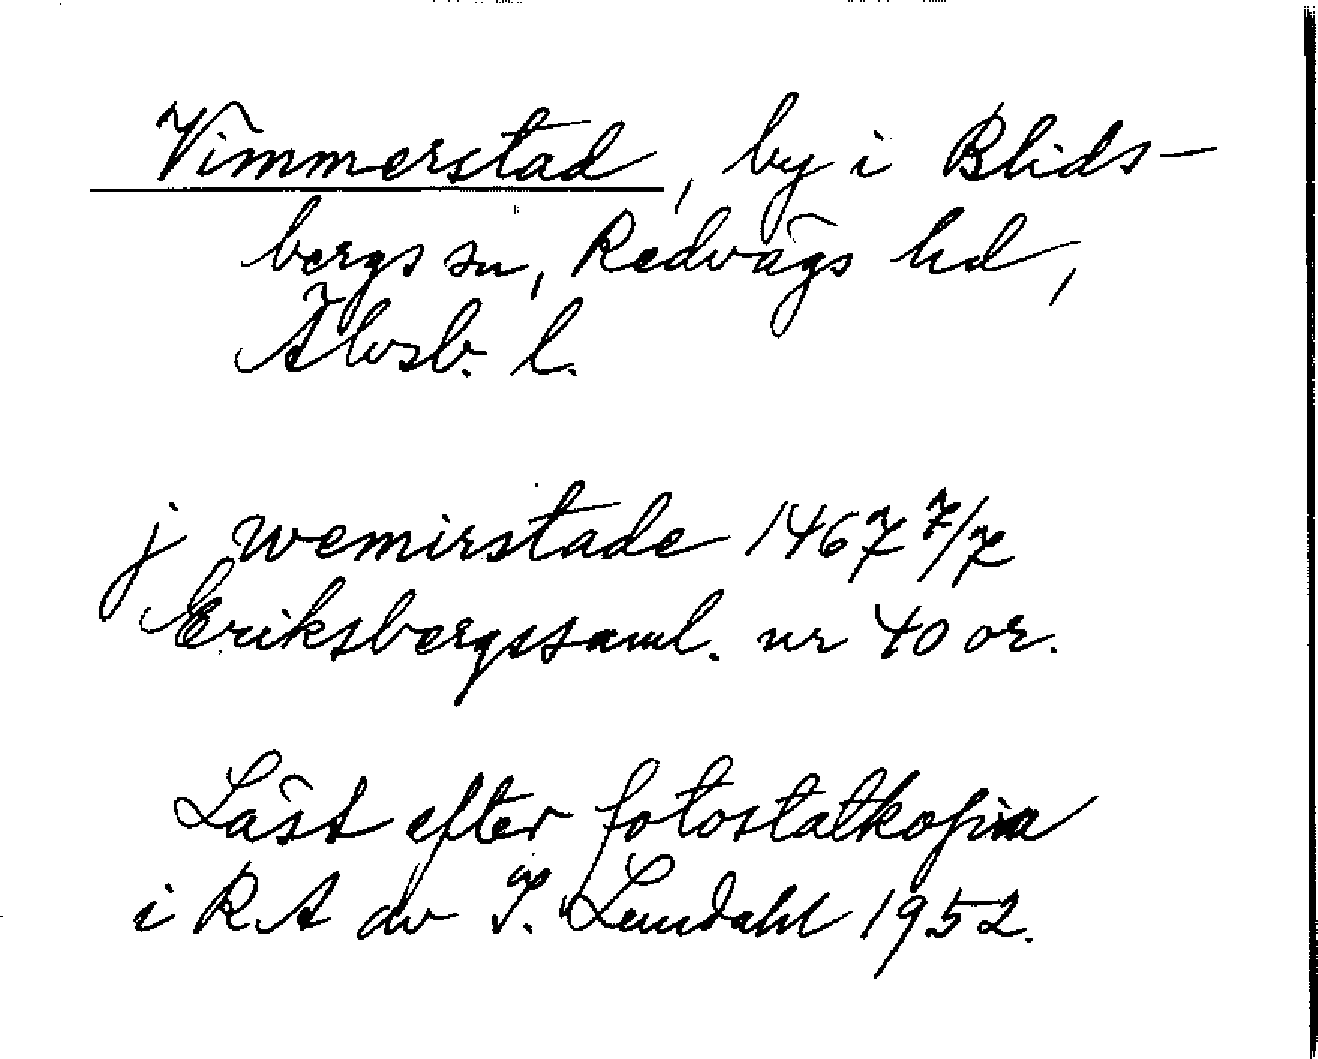 Vimmerstad, by i Blids-
bergs sn, Redvägs hd,
Älvsb. l.
j wemirstade 1467 7/7
Eriksbergssaml. nr 40 or.
Läst efter fotostatkopia
i RA av I. Lundahl 1952.